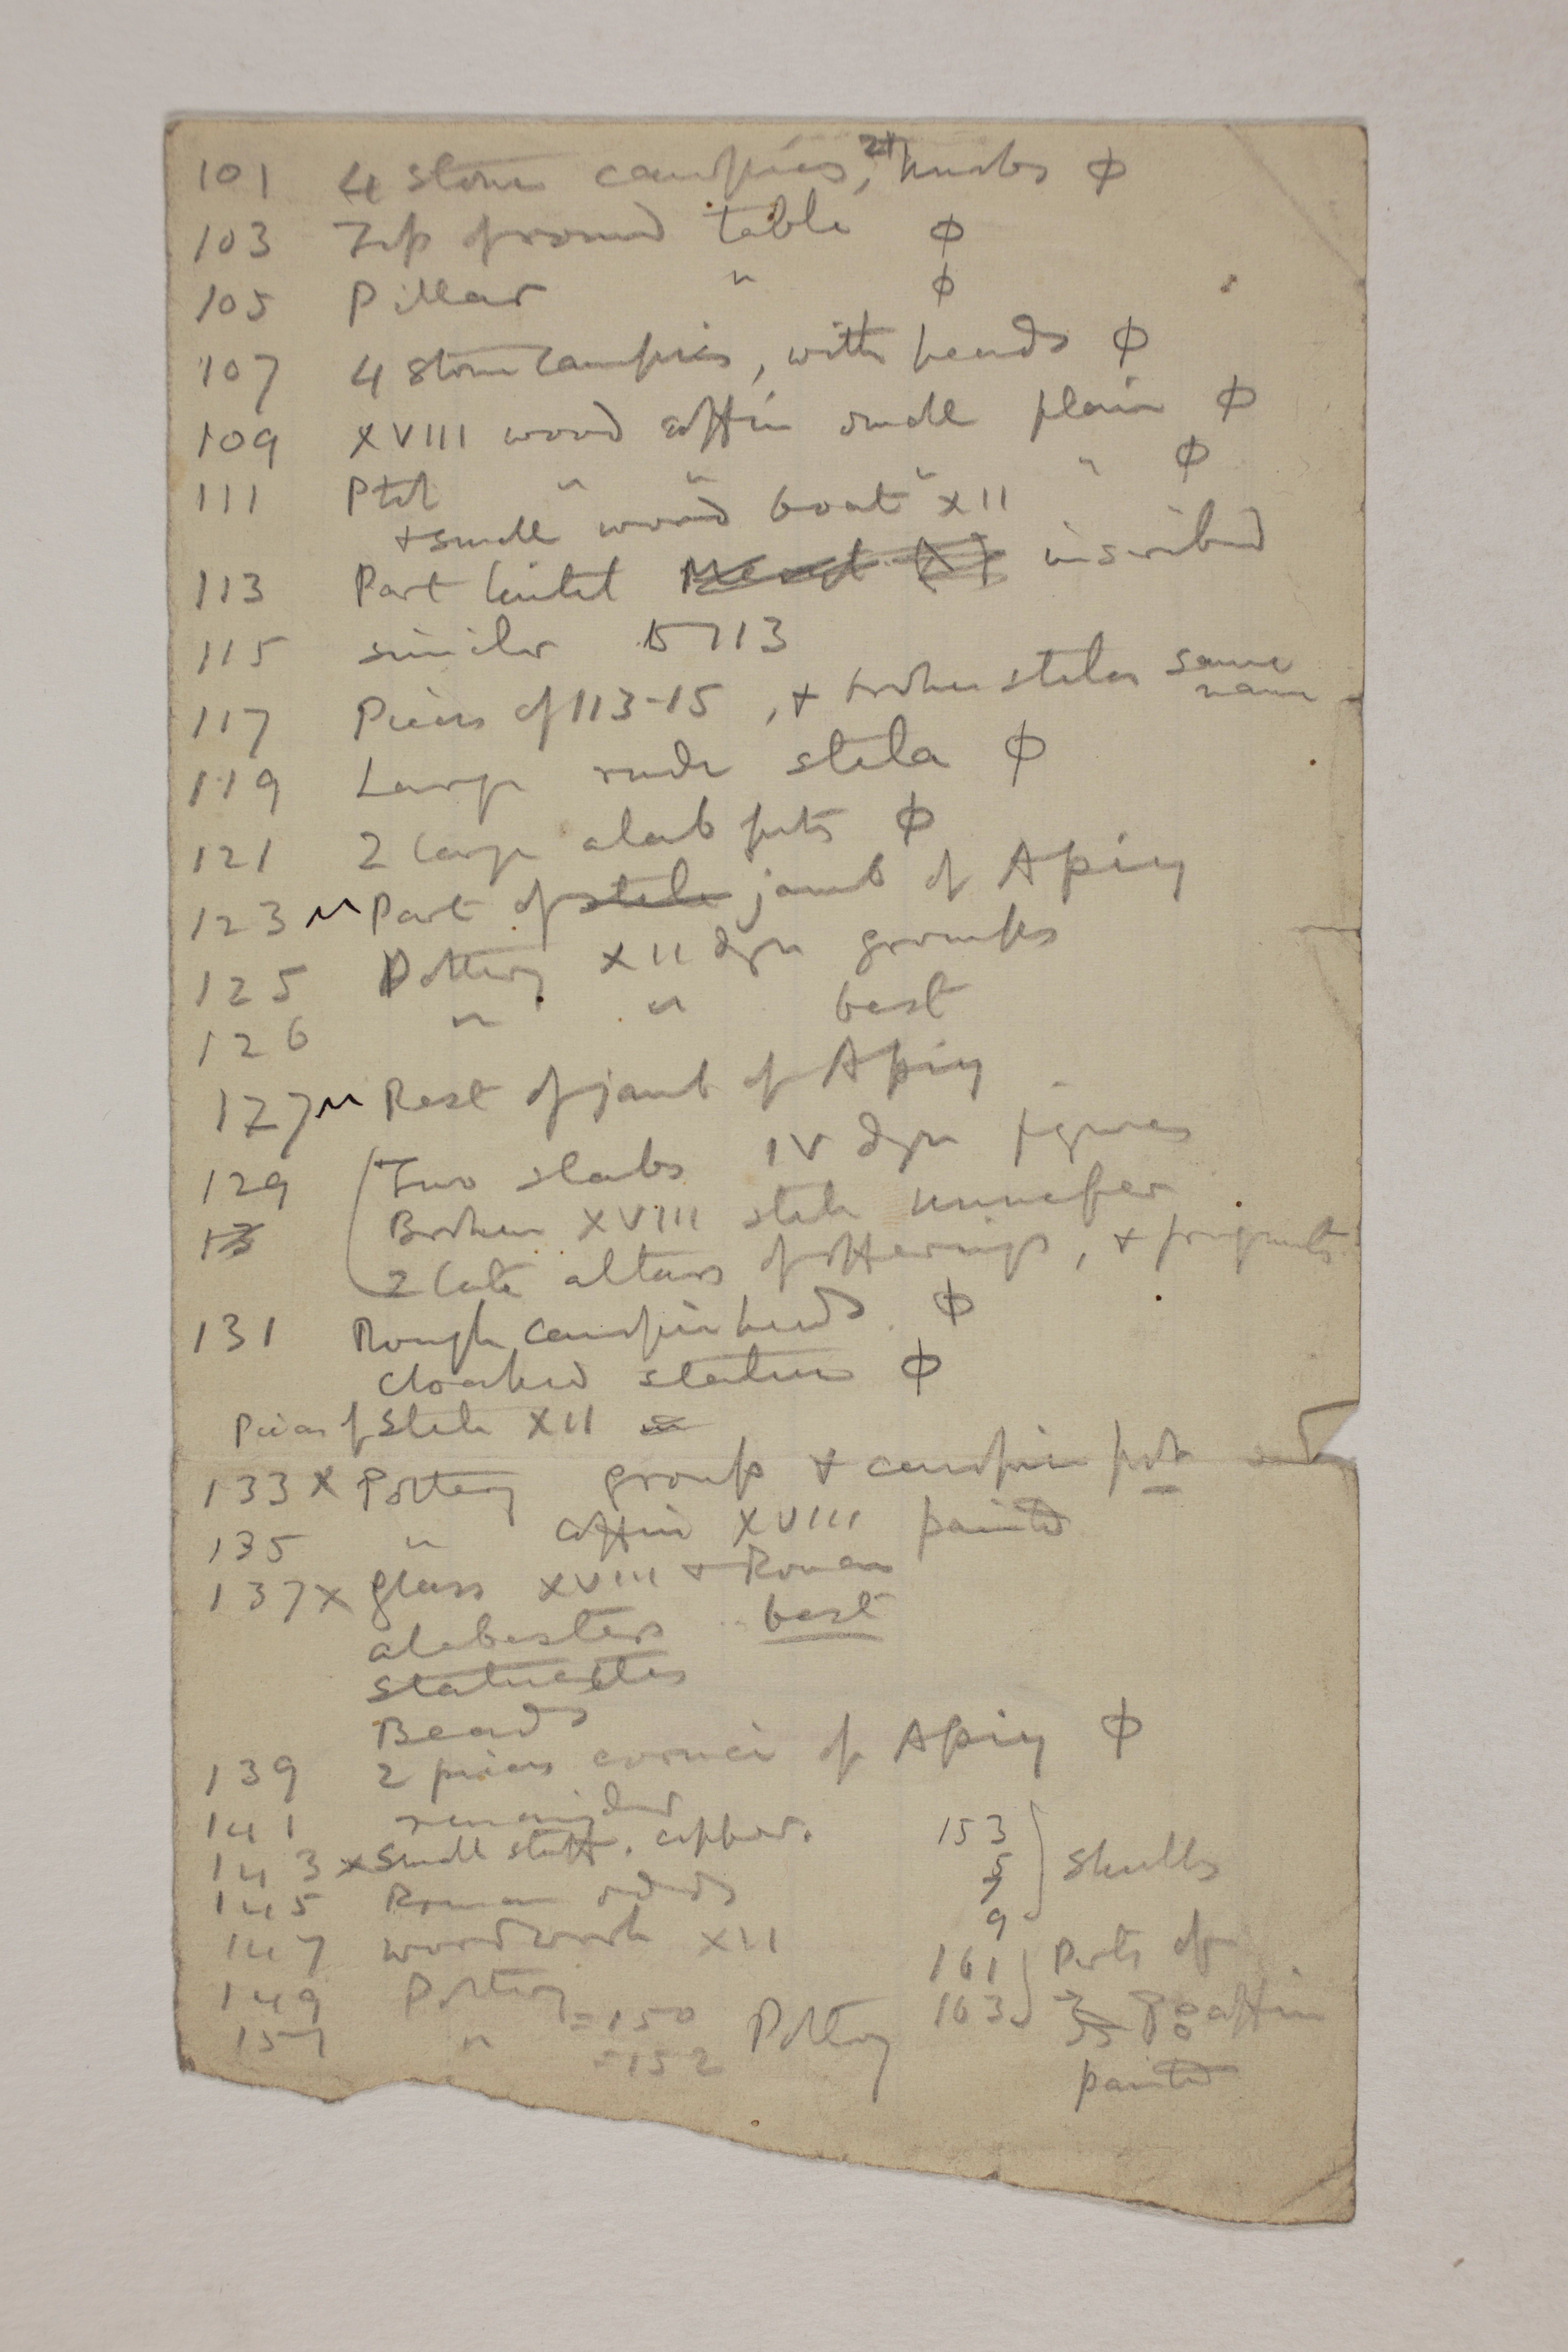 101 4 stone canopics, 2 knobs ϕ
103 Top of round table ϕ
105 Pillar " ϕ
107 4 stone canopics, with heads ϕ
109 XVIII wood coffin small plain ϕ
111 Ptol " " " " ϕ
+ small wood boat XII
113 Part lintel inscribed
115 similar to 113
117 Pieces of 113-15, + broken stelas same name
119 Large rude stela ϕ
121 2 large alab pots ϕ
123 Part of stela jamb of Apiy
125 Pottery XII dyn groups
126 " " best
127 Rest of jamb of Apiy
129 Two slabs IV dyn figures
13 Broken XVIII stela unnefer
2 late altars of offerings, + fragments
131 Rough canopic heads ϕ
cloaked statue ϕ
Pieces of Stela XII
133 x Pottery group + canopic pot
135 " coffin XVIII painted
137 x glass XVIII + Roman
alabasters best
statuettes
Beads
139 2 pieces cornice of Apiy ϕ
141 remainder
143 x Small stuff. copper.
145 Roman
147 woodwork XII
149 Pottery = 150 Pottery
157 " = 152
153
5
7
9 Skulls
161 Parts of
163 coffin
painted